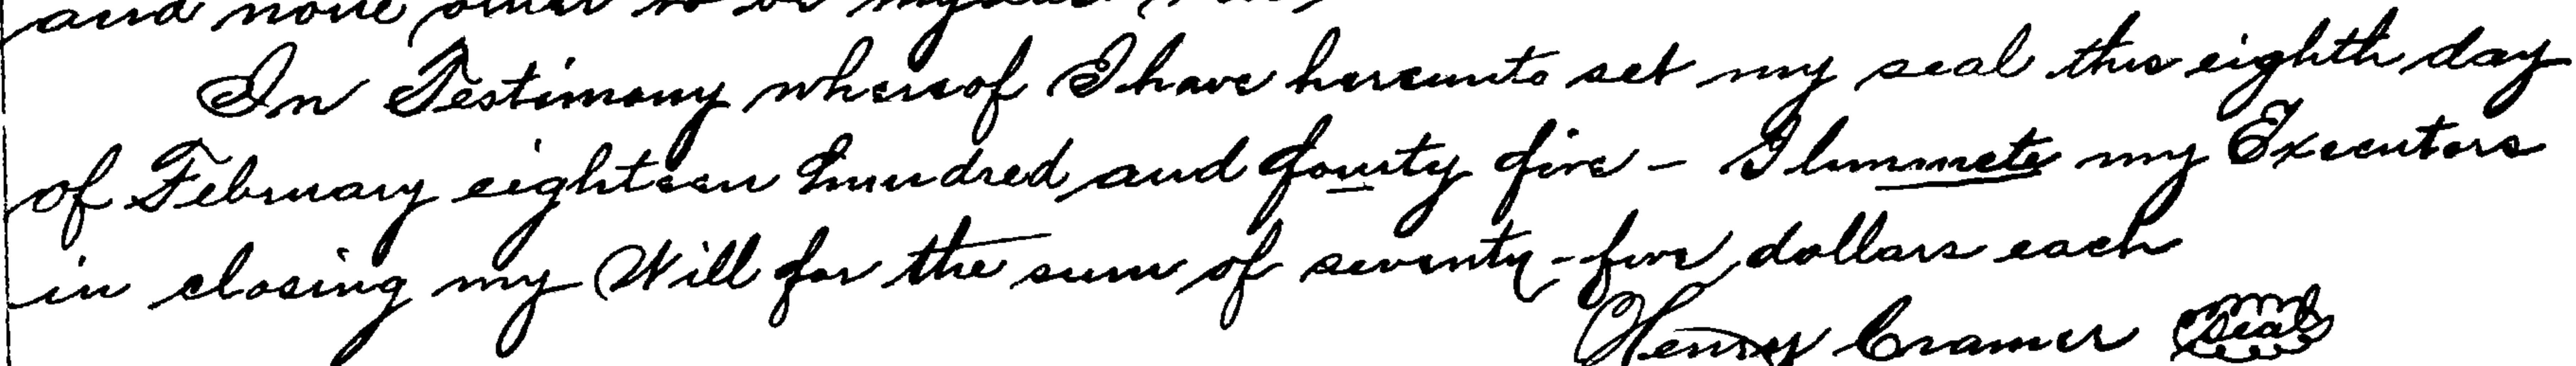 and none other to be my
In Testimony whereof I have hereunto set my seal this eighth day
of February eighteen hundred and fourty five - I lumunete my Executors
in closing my Will for the sum of seventy-five dollars each
Henry Cramer Seal